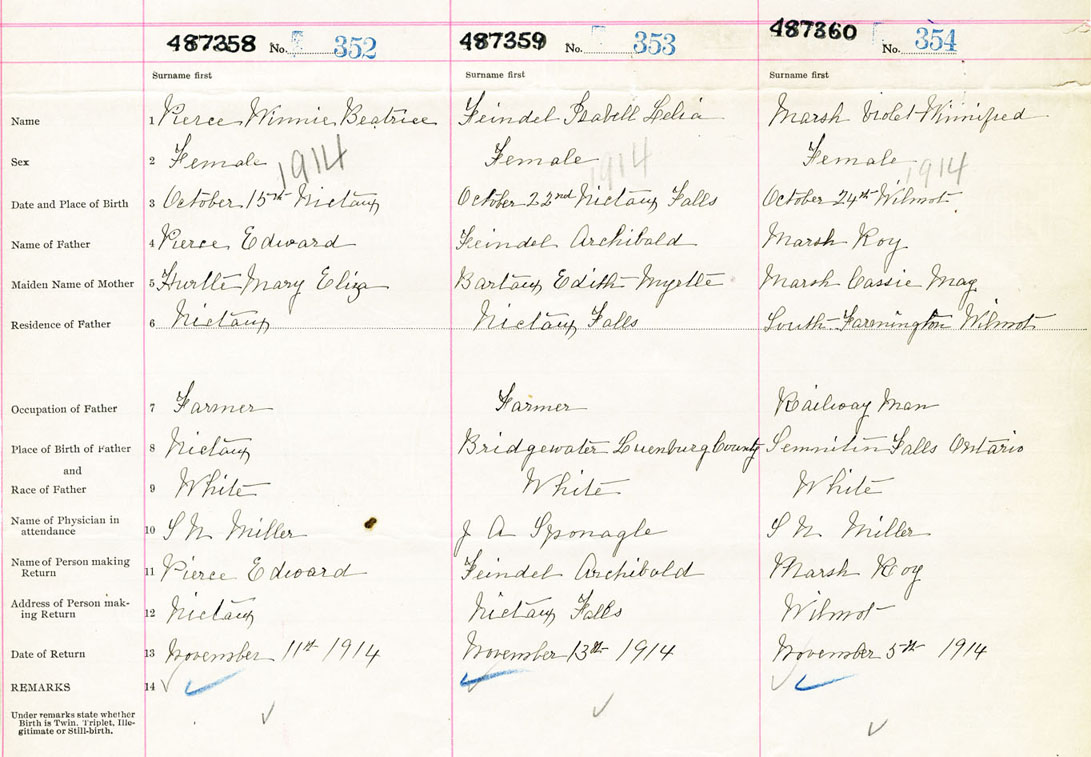 487358 No. 352 487359 No. 353 487360 No. 354
Surname first Surname first Surname first
Name 1 Pierce Winnie Beatrice Feindel Isabell Lelia Marsh Violet Winnifred
Sex 2 Female Female Female
1914 1914 1914
Date and Place of Birth 3 October 15th Nictaux October 22nd Nictaux Falls October 24th Wilmot
Name of Father 4 Pierce Edward Feindel Archibald Marsh Roy
Maiden Name of Mother 5 Hurtle Mary Eliza Bartaux Edith Myrtle Marsh Cassie May
Residence of Father 6 Nictaux Nictaux Falls South Farmington Wilmot
Occupation of Father 7 Farmer Farmer Railway Man
Place of Birth of Father 8 Nictaux Bridgewater Luenburg County Falls Ontario
and
Race of Father 9 White White White
Name of Physician in
attendance 10 S N Miller J A Sponagle S N Miller
Name of Person making
Return 11 Pierce Edward Feindel Archibald Marsh Roy
Address of Person mak-
ing Return 12 Nictaux Nictaux Falls Wilmot
Date of Return 13 November 11th 1914 November 13th 1914 November 5th 1914
REMARKS 14
Under remarks state whether
Birth is Twin, Triplet, Ille-
gitimate or Still-birth.